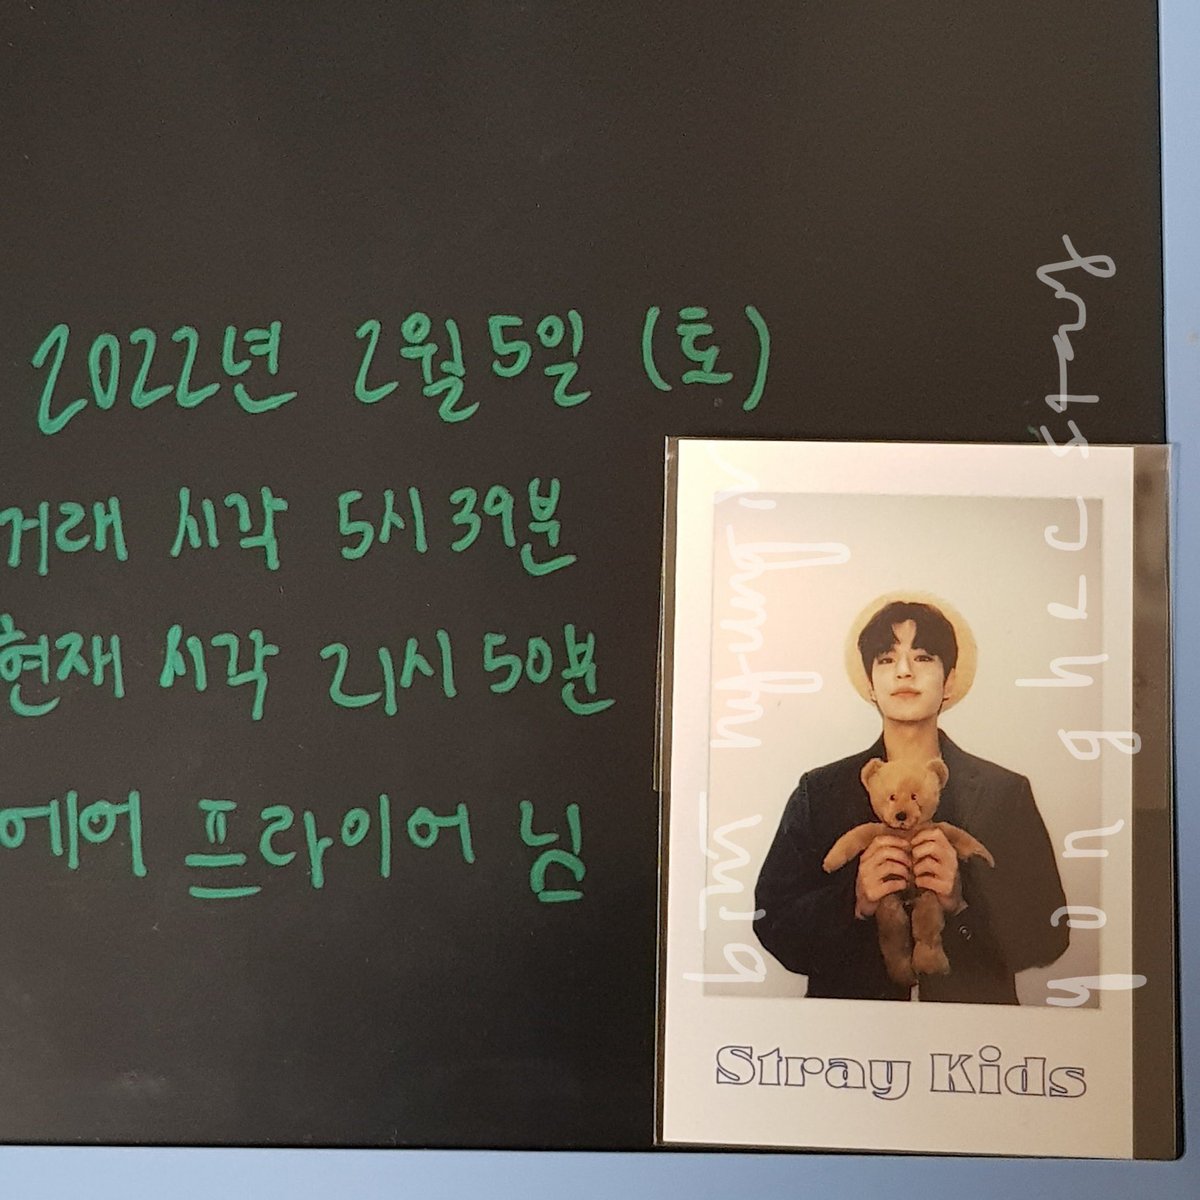 2022년 2월 5일 (토)
거래 시각 5시 39분
현재 시각 21시 50분
에어 프라이어 님
Stray Kids